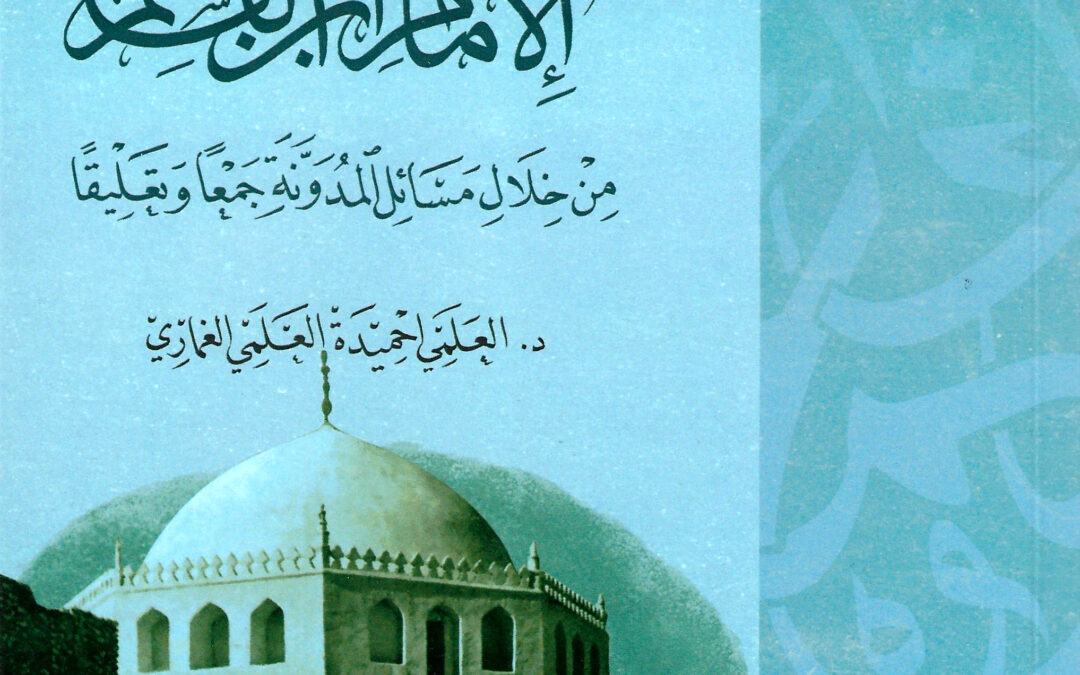 الإمام ابن القاسم
مِنْ خِلَالِ مَسَائِلِ المُدَوَّنَةِ جَمْعًا وَتَعْلِيقًا
د. العَلَمِّي احْمِيْدَةْ العَلَمِّي الغمَارِيّ